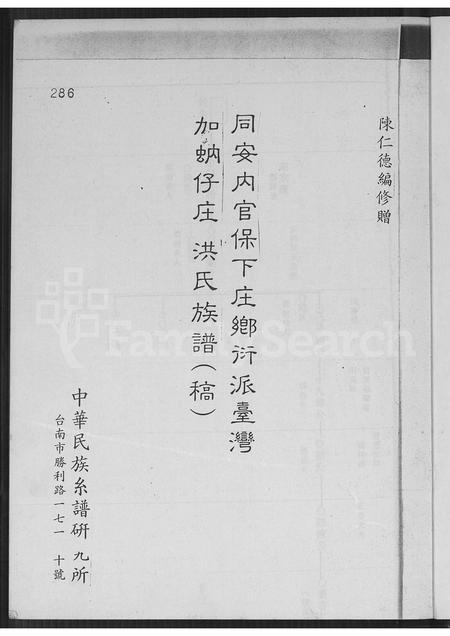 286
陳仁德編修贈
同安內官保下庄鄉衍派臺灣
加蚋仔庄 洪氏族譜(稿)
中華民族糸譜研九所
台南市勝利路一七一 十號
FamilySearch